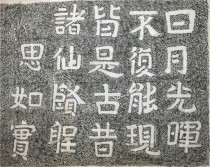 日月光暉
不復能現
皆是古昔
諸仙賢聖
思如實